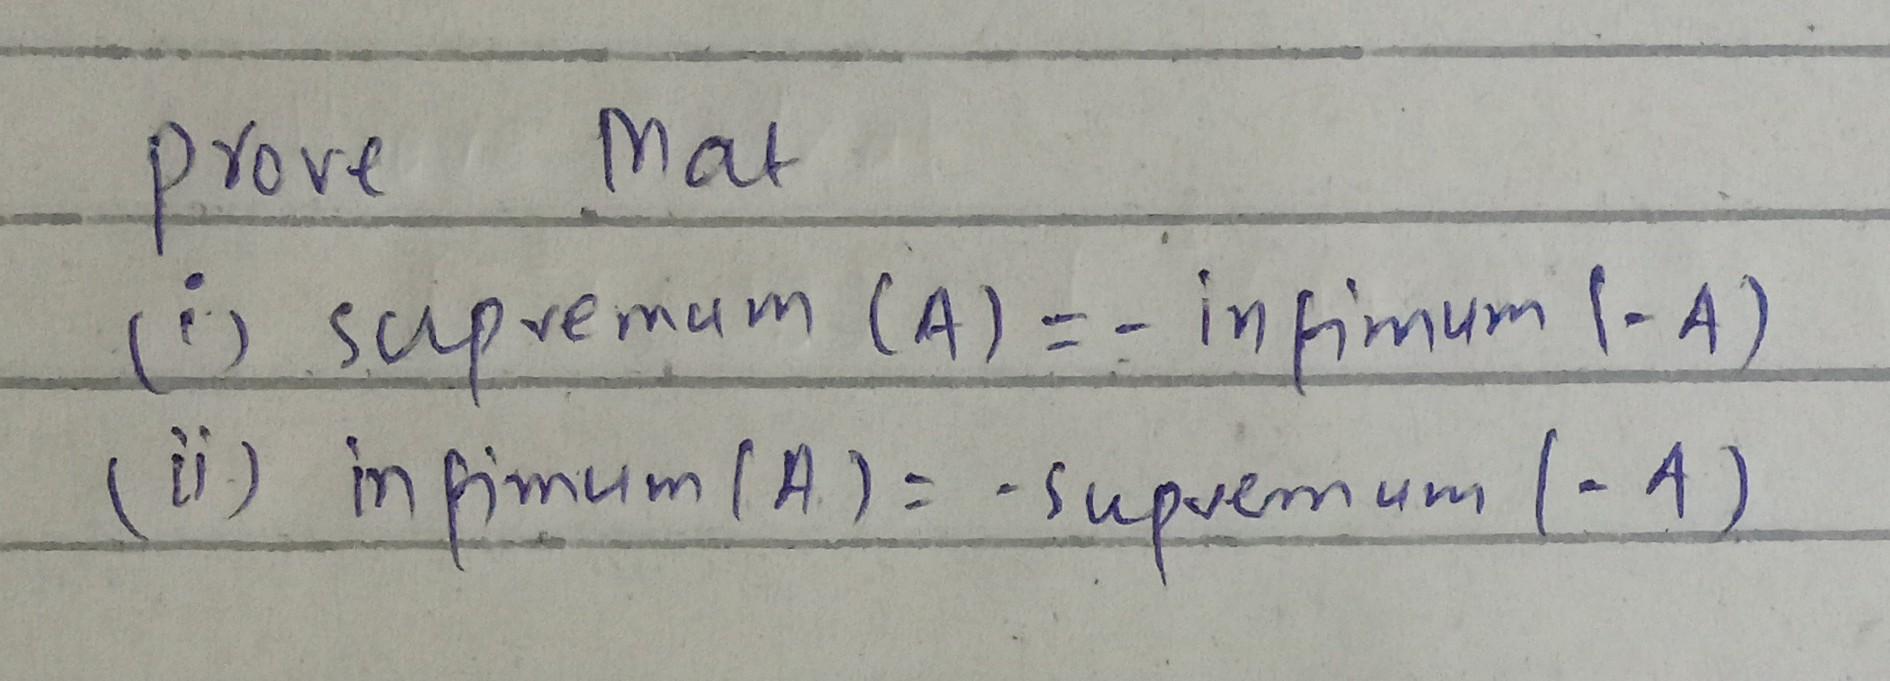 prove that
(i) supremum (A) = - infimum (-A)
(ii) infimum (A) = - supremum (-A)